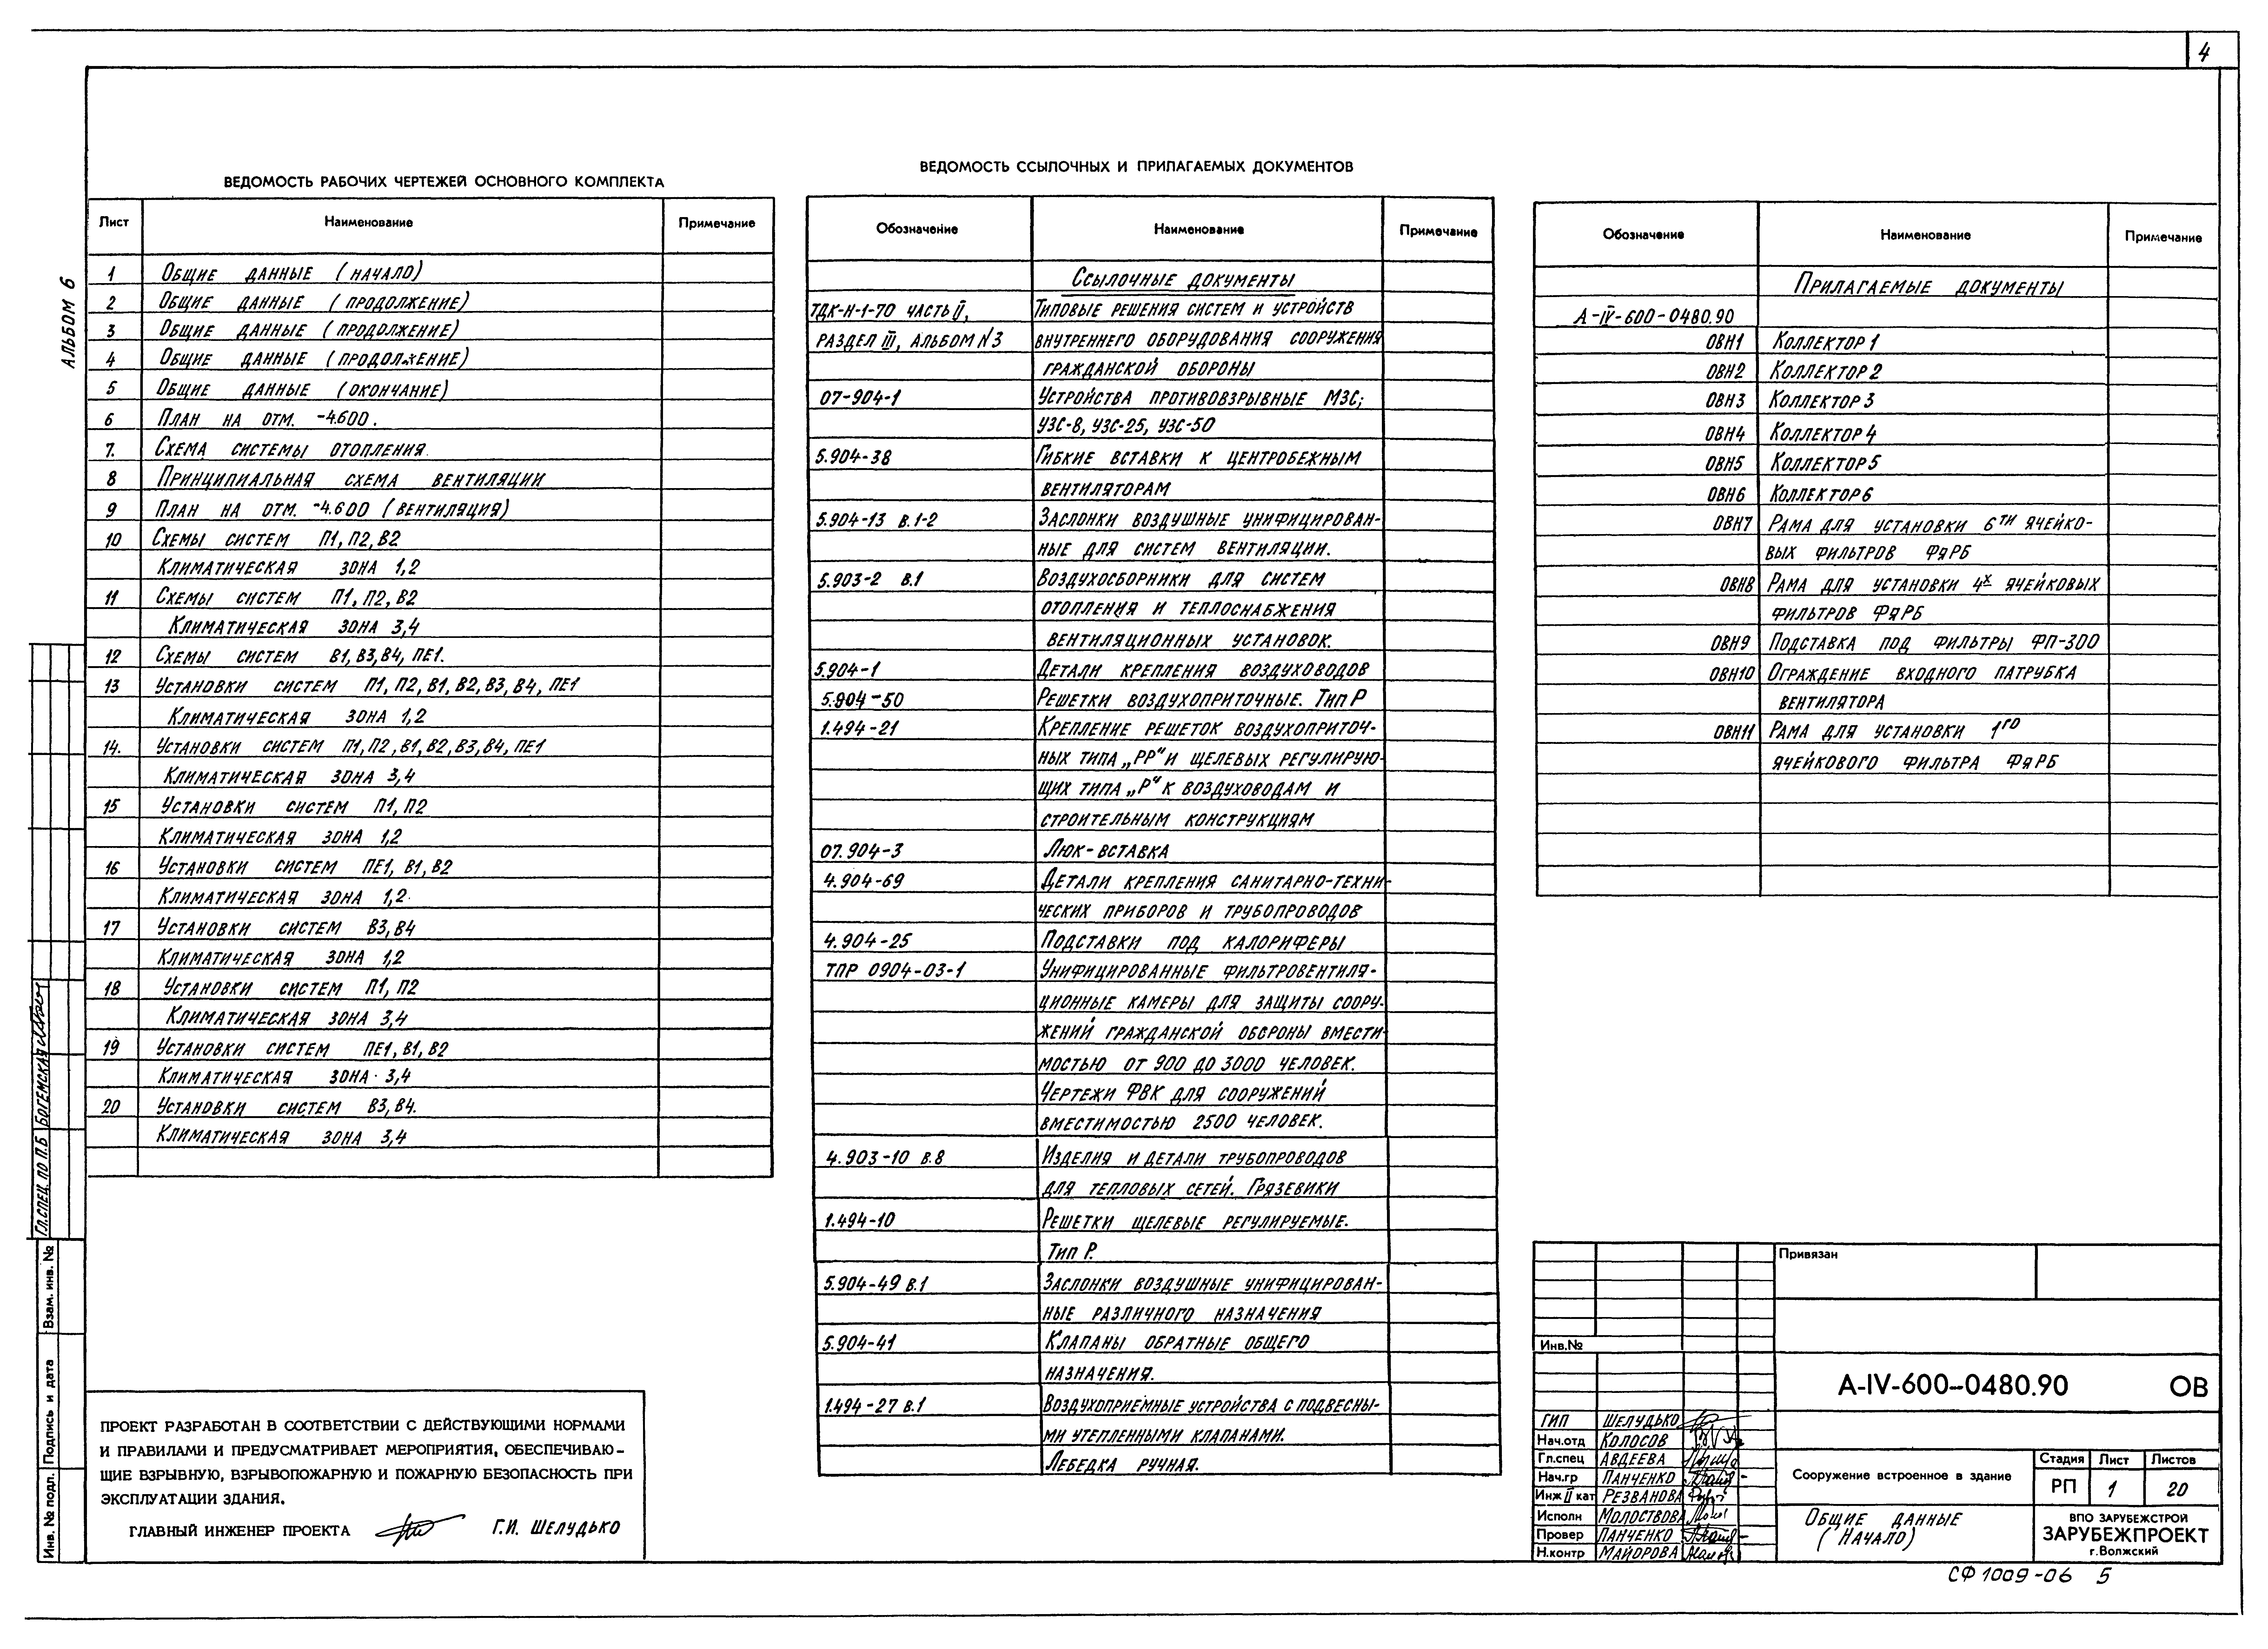 4
АЛЬБОМ 6
ВЕДОМОСТЬ РАБОЧИХ ЧЕРТЕЖЕЙ ОСНОВНОГО КОМПЛЕКТА
Лист Наименование Примечание
1 ОБЩИЕ ДАННЫЕ (НАЧАЛО)
2 ОБЩИЕ ДАННЫЕ (ПРОДОЛЖЕНИЕ)
3 ОБЩИЕ ДАННЫЕ (ПРОДОЛЖЕНИЕ)
4 ОБЩИЕ ДАННЫЕ (ПРОДОЛЖЕНИЕ)
5 ОБЩИЕ ДАННЫЕ (ОКОНЧАНИЕ)
6 ПЛАН НА ОТМ. -4.600.
7. СХЕМА СИСТЕМЫ ОТОПЛЕНИЯ
8 ПРИНЦИПИАЛЬНАЯ СХЕМА ВЕНТИЛЯЦИИ
9 ПЛАН НА ОТМ. -4.600 (ВЕНТИЛЯЦИЯ)
10 СХЕМЫ СИСТЕМ П1, П2, В2
КЛИМАТИЧЕСКАЯ ЗОНА 1,2
11 СХЕМЫ СИСТЕМ П1, П2, В2
КЛИМАТИЧЕСКАЯ ЗОНА 3,4
12 СХЕМЫ СИСТЕМ В1, В3, В4, ПЕ1.
13 УСТАНОВКИ СИСТЕМ П1, П2, В1, В2, В3, В4, ПЕ1
КЛИМАТИЧЕСКАЯ ЗОНА 1,2
14. УСТАНОВКИ СИСТЕМ П1, П2, В1, В2, В3, В4, ПЕ1
КЛИМАТИЧЕСКАЯ ЗОНА 3,4
15 УСТАНОВКИ СИСТЕМ П1, П2
КЛИМАТИЧЕСКАЯ ЗОНА 1,2
16 УСТАНОВКИ СИСТЕМ ПЕ1, В1, В2
КЛИМАТИЧЕСКАЯ ЗОНА 1,2.
17 УСТАНОВКИ СИСТЕМ В3, В4
КЛИМАТИЧЕСКАЯ ЗОНА 1,2
18 УСТАНОВКИ СИСТЕМ П1, П2
КЛИМАТИЧЕСКАЯ ЗОНА 3,4
19 УСТАНОВКИ СИСТЕМ ПЕ1, В1, В2
КЛИМАТИЧЕСКАЯ ЗОНА 3,4
20 УСТАНОВКИ СИСТЕМ В3, В4.
КЛИМАТИЧЕСКАЯ ЗОНА 3,4
ВЕДОМОСТЬ ССЫЛОЧНЫХ И ПРИЛАГАЕМЫХ ДОКУМЕНТОВ
Обозначение Наименование Примечание
ССЫЛОЧНЫЕ ДОКУМЕНТЫ
ТДК-Н-1-70 ЧАСТЬ II, ТИПОВЫЕ РЕШЕНИЯ СИСТЕМ И УСТРОЙСТВ
РАЗДЕЛ III, АЛЬБОМ N3 ВНУТРЕННЕГО ОБОРУДОВАНИЯ СООРУЖЕНИЯ
ГРАЖДАНСКОЙ ОБОРОНЫ
07-904-1 УСТРОЙСТВА ПРОТИВОВЗРЫВНЫЕ МЗС;
УЗС-8, УЗС-25, УЗС-50
5.904-38 ГИБКИЕ ВСТАВКИ К ЦЕНТРОБЕЖНЫМ
ВЕНТИЛЯТОРАМ
5.904-13 В.1-2 ЗАСЛОНКИ ВОЗДУШНЫЕ УНИФИЦИРОВАН-
НЫЕ ДЛЯ СИСТЕМ ВЕНТИЛЯЦИИ.
5.903-2 В.1 ВОЗДУХОСБОРНИКИ ДЛЯ СИСТЕМ
ОТОПЛЕНИЯ И ТЕПЛОСНАБЖЕНИЯ
ВЕНТИЛЯЦИОННЫХ УСТАНОВОК.
5.904-1 ДЕТАЛИ КРЕПЛЕНИЯ ВОЗДУХОВОДОВ
5.904-50 РЕШЕТКИ ВОЗДУХОПРИТОЧНЫЕ. ТИП Р
1.494-21 КРЕПЛЕНИЕ РЕШЕТОК ВОЗДУХОПРИТОЧ-
НЫХ ТИПА „РР" И ЩЕЛЕВЫХ РЕГУЛИРУЮ-
ЩИХ ТИПА „Р" К ВОЗДУХОВОДАМ И
СТРОИТЕЛЬНЫМ КОНСТРУКЦИЯМ
07.904-3 ЛЮК-ВСТАВКА
4.904-69 ДЕТАЛИ КРЕПЛЕНИЯ САНИТАРНО-ТЕХНИ-
ЧЕСКИХ ПРИБОРОВ И ТРУБОПРОВОДОВ
4.904-25 ПОДСТАВКИ ПОД КАЛОРИФЕРЫ
ТПР 0904-03-1 УНИФИЦИРОВАННЫЕ ФИЛЬТРОВЕНТИЛЯ-
ЦИОННЫЕ КАМЕРЫ ДЛЯ ЗАЩИТЫ СООРУ-
ЖЕНИЙ ГРАЖДАНСКОЙ ОБОРОНЫ ВМЕСТИ-
МОСТЬЮ ОТ 900 ДО 3000 ЧЕЛОВЕК.
ЧЕРТЕЖИ ФВК ДЛЯ СООРУЖЕНИЙ
ВМЕСТИМОСТЬЮ 2500 ЧЕЛОВЕК.
4.903-10 В.8 ИЗДЕЛИЯ И ДЕТАЛИ ТРУБОПРОВОДОВ
ДЛЯ ТЕПЛОВЫХ СЕТЕЙ. ГРЯЗЕВИКИ
1.494-10 РЕШЕТКИ ЩЕЛЕВЫЕ РЕГУЛИРУЕМЫЕ.
ТИП Р.
5.904-49 В.1 ЗАСЛОНКИ ВОЗДУШНЫЕ УНИФИЦИРОВАН-
НЫЕ РАЗЛИЧНОГО НАЗНАЧЕНИЯ
5.904-41 КЛАПАНЫ ОБРАТНЫЕ ОБЩЕГО
НАЗНАЧЕНИЯ.
1.494-27 В.1 ВОЗДУХОПРИЕМНЫЕ УСТРОЙСТВА С ПОДВЕСНЫ-
МИ УТЕПЛЕННЫМИ КЛАПАНАМИ.
ЛЕБЕДКА РУЧНАЯ.
Обозначение Наименование Примечание
ПРИЛАГАЕМЫЕ ДОКУМЕНТЫ
А-IV-600-0480.90
ОВН1 КОЛЛЕКТОР 1
ОВН2 КОЛЛЕКТОР 2
ОВН3 КОЛЛЕКТОР 3
ОВН4 КОЛЛЕКТОР 4
ОВН5 КОЛЛЕКТОР 5
ОВН6 КОЛЛЕКТОР 6
ОВН7 РАМА ДЛЯ УСТАНОВКИ 6ТИ ЯЧЕЙКО-
ВЫХ ФИЛЬТРОВ ФЯРБ
ОВН8 РАМА ДЛЯ УСТАНОВКИ 4Х ЯЧЕЙКОВЫХ
ФИЛЬТРОВ ФЯРБ
ОВН9 ПОДСТАВКА ПОД ФИЛЬТРЫ ФП-300
ОВН10 ОГРАЖДЕНИЕ ВХОДНОГО ПАТРУБКА
ВЕНТИЛЯТОРА
ОВН11 РАМА ДЛЯ УСТАНОВКИ 1ГО
ЯЧЕЙКОВОГО ФИЛЬТРА ФЯРБ
ПРОЕКТ РАЗРАБОТАН В СООТВЕТСТВИИ С ДЕЙСТВУЮЩИМИ НОРМАМИ
И ПРАВИЛАМИ И ПРЕДУСМАТРИВАЕТ МЕРОПРИЯТИЯ, ОБЕСПЕЧИВАЮ-
ЩИЕ ВЗРЫВНУЮ, ВЗРЫВОПОЖАРНУЮ И ПОЖАРНУЮ БЕЗОПАСНОСТЬ ПРИ
ЭКСПЛУАТАЦИИ ЗДАНИЯ.
ГЛАВНЫЙ ИНЖЕНЕР ПРОЕКТА Г.И. ШЕЛУДЬКО
ГЛ.СПЕЦ. ПО П.Б БОГЕМСКАЯ
Взам. инв. №
Подпись и дата
Инв. № подл.
Привязан
Инв.№
А-IV-600-0480.90 ОВ
ГИП ШЕЛУДЬКО
Нач.отд КОЛОСОВ
Гл.спец АВДЕЕВА
Нач.гр ПАНЧЕНКО
Инж II кат РЕЗВАНОВА
Исполн МОЛОСТВОВА
Провер ПАНЧЕНКО
Н.контр МАЙОРОВА
Сооружение встроенное в здание
Стадия Лист Листов
РП 1 20
ОБЩИЕ ДАННЫЕ
(НАЧАЛО)
ВПО ЗАРУБЕЖСТРОЙ
ЗАРУБЕЖПРОЕКТ
г.Волжский
СФ 1009-06 5